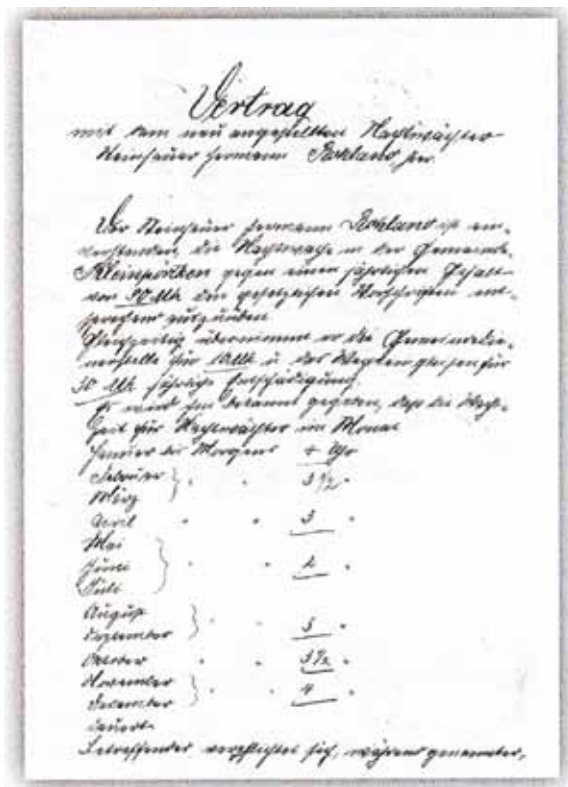 Vertrag
mit dem neu angestellten Nachtwächter
Steinhauer Hermann Rohland, hier.
Der Steinhauer Hermann Rohland ist ein-
verstanden die Nachtwache in der Gemeinde
Kleinporthen gegen einen jährlichen Gehalt
von 90 Mk den gesetzlichen Vorschriften ent-
sprechend auszuüben.
Gleichzeitig übernimmt er die Gemeindedie-
nerstelle für 10 Mk u. das für
30 Mk jährliche Entschädigung.
Es wird ihm bekannt gegeben, daß die Wach-
zeit für Nachtwächter im Monat
Januar bis Morgens 4 Uhr
Februar } " " 3 1/2 "
März
April " " 3 "
Mai
Juni } " " 2 "
Juli
August
September } " " 3 "
October " " 3 1/2 "
November
December } " " 4 "
dauert.
Betreffender verpflichtet sich, während genannter,